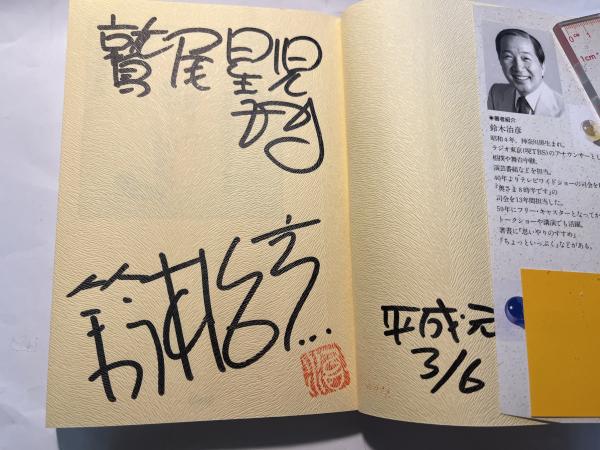 鷲尾星児
平成元
3/6
0cm 1
1cm
●著者紹介
鈴木治彦
昭和4年、神奈川県生まれ。
ラジオ東京(現TBS)のアナウンサーとし
相撲や舞台中継、
演芸番組などを担当。
46年よりテレビワイドショーの司会を
『奥さま8時半です』の
司会を13年間担当した。
59年にフリー・キャスターとなってか
トークショーや講演でも活躍。
著書に『思いやりのすすめ』
『ちょっといっぷく』などがある。